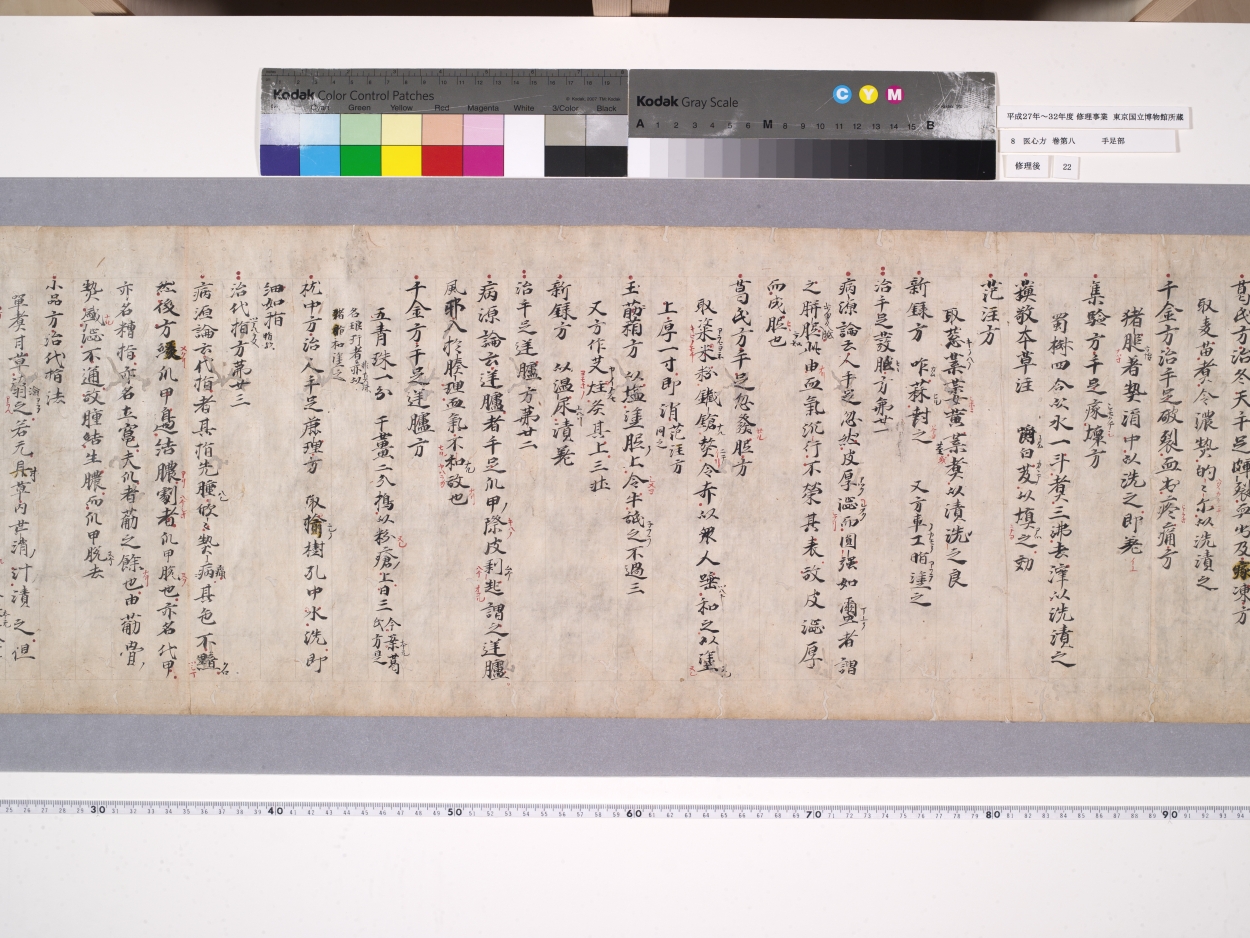 Kodak Color Control Patches
Cyan Green Yellow Red Magenta White 3/Color Black
Kodak Gray Scale
C Y M
A 1 2 3 4 5 6 M 8 9 10 11 12 13 14 15 B
平成27年～32年度 修理事業 東京国立博物館所蔵
8 医心方 巻第八 手足部
修理後 22
葛氏方治冬天手足皸裂血出及瘃凍方
取麦苗煮令濃熱的々尓以洗漬之
千金方治手足破裂血出疼痛方
猪脂着熱湯中以洗之即差
集験方手足瘃爛方
蜀椒四合以水一斗煮三沸去滓以洗漬之
蘇敬本草注 白芨以填之効
范汪方
取葱葉萎黄葉煮以漬洗之良
新録方 咋蒜封之 又方車工脂塗之
治手足發胝方第廿一
病源論云人手足忽然皮厚澁而圓強如璽者謂
之胼胝此由血氣沉行不榮其表故皮澁厚
而成胝也
葛氏方手足忽發胝方
取粢米粉鐵鎗熬令赤以衆人唾和之以塗
上厚一寸即消 范汪方同之
玉葙方 以塩塗胝上令牛舐之不過三
又方作艾炷灸其上三壮
新録方 以温尿漬差
治手足逆臚方第廿二
病源論云逆臚者手足爪甲際皮剥起謂之逆臚
風邪入於腠理血氣不和故也
千金方手足逆臚方
五青珠一分 干薑二分搗以粉瘡上日三
枕中方治人手足麁理方 取楡樹孔中水洗即
細如指
治代指方第廿三
病源論云代指者其指先腫焮々熱痛其色不黯
然後方緩爪甲邉結膿劇者爪甲脱也亦名代甲
亦名糟指亦名土竃夫爪者筋之餘也由筋骨
熱盛澁不通故腫結生膿而爪甲脱去
小品方治代指法
單煮甘草汁漬之若无甘草内芒消汁漬之但
30 40 50 60 70 80 90